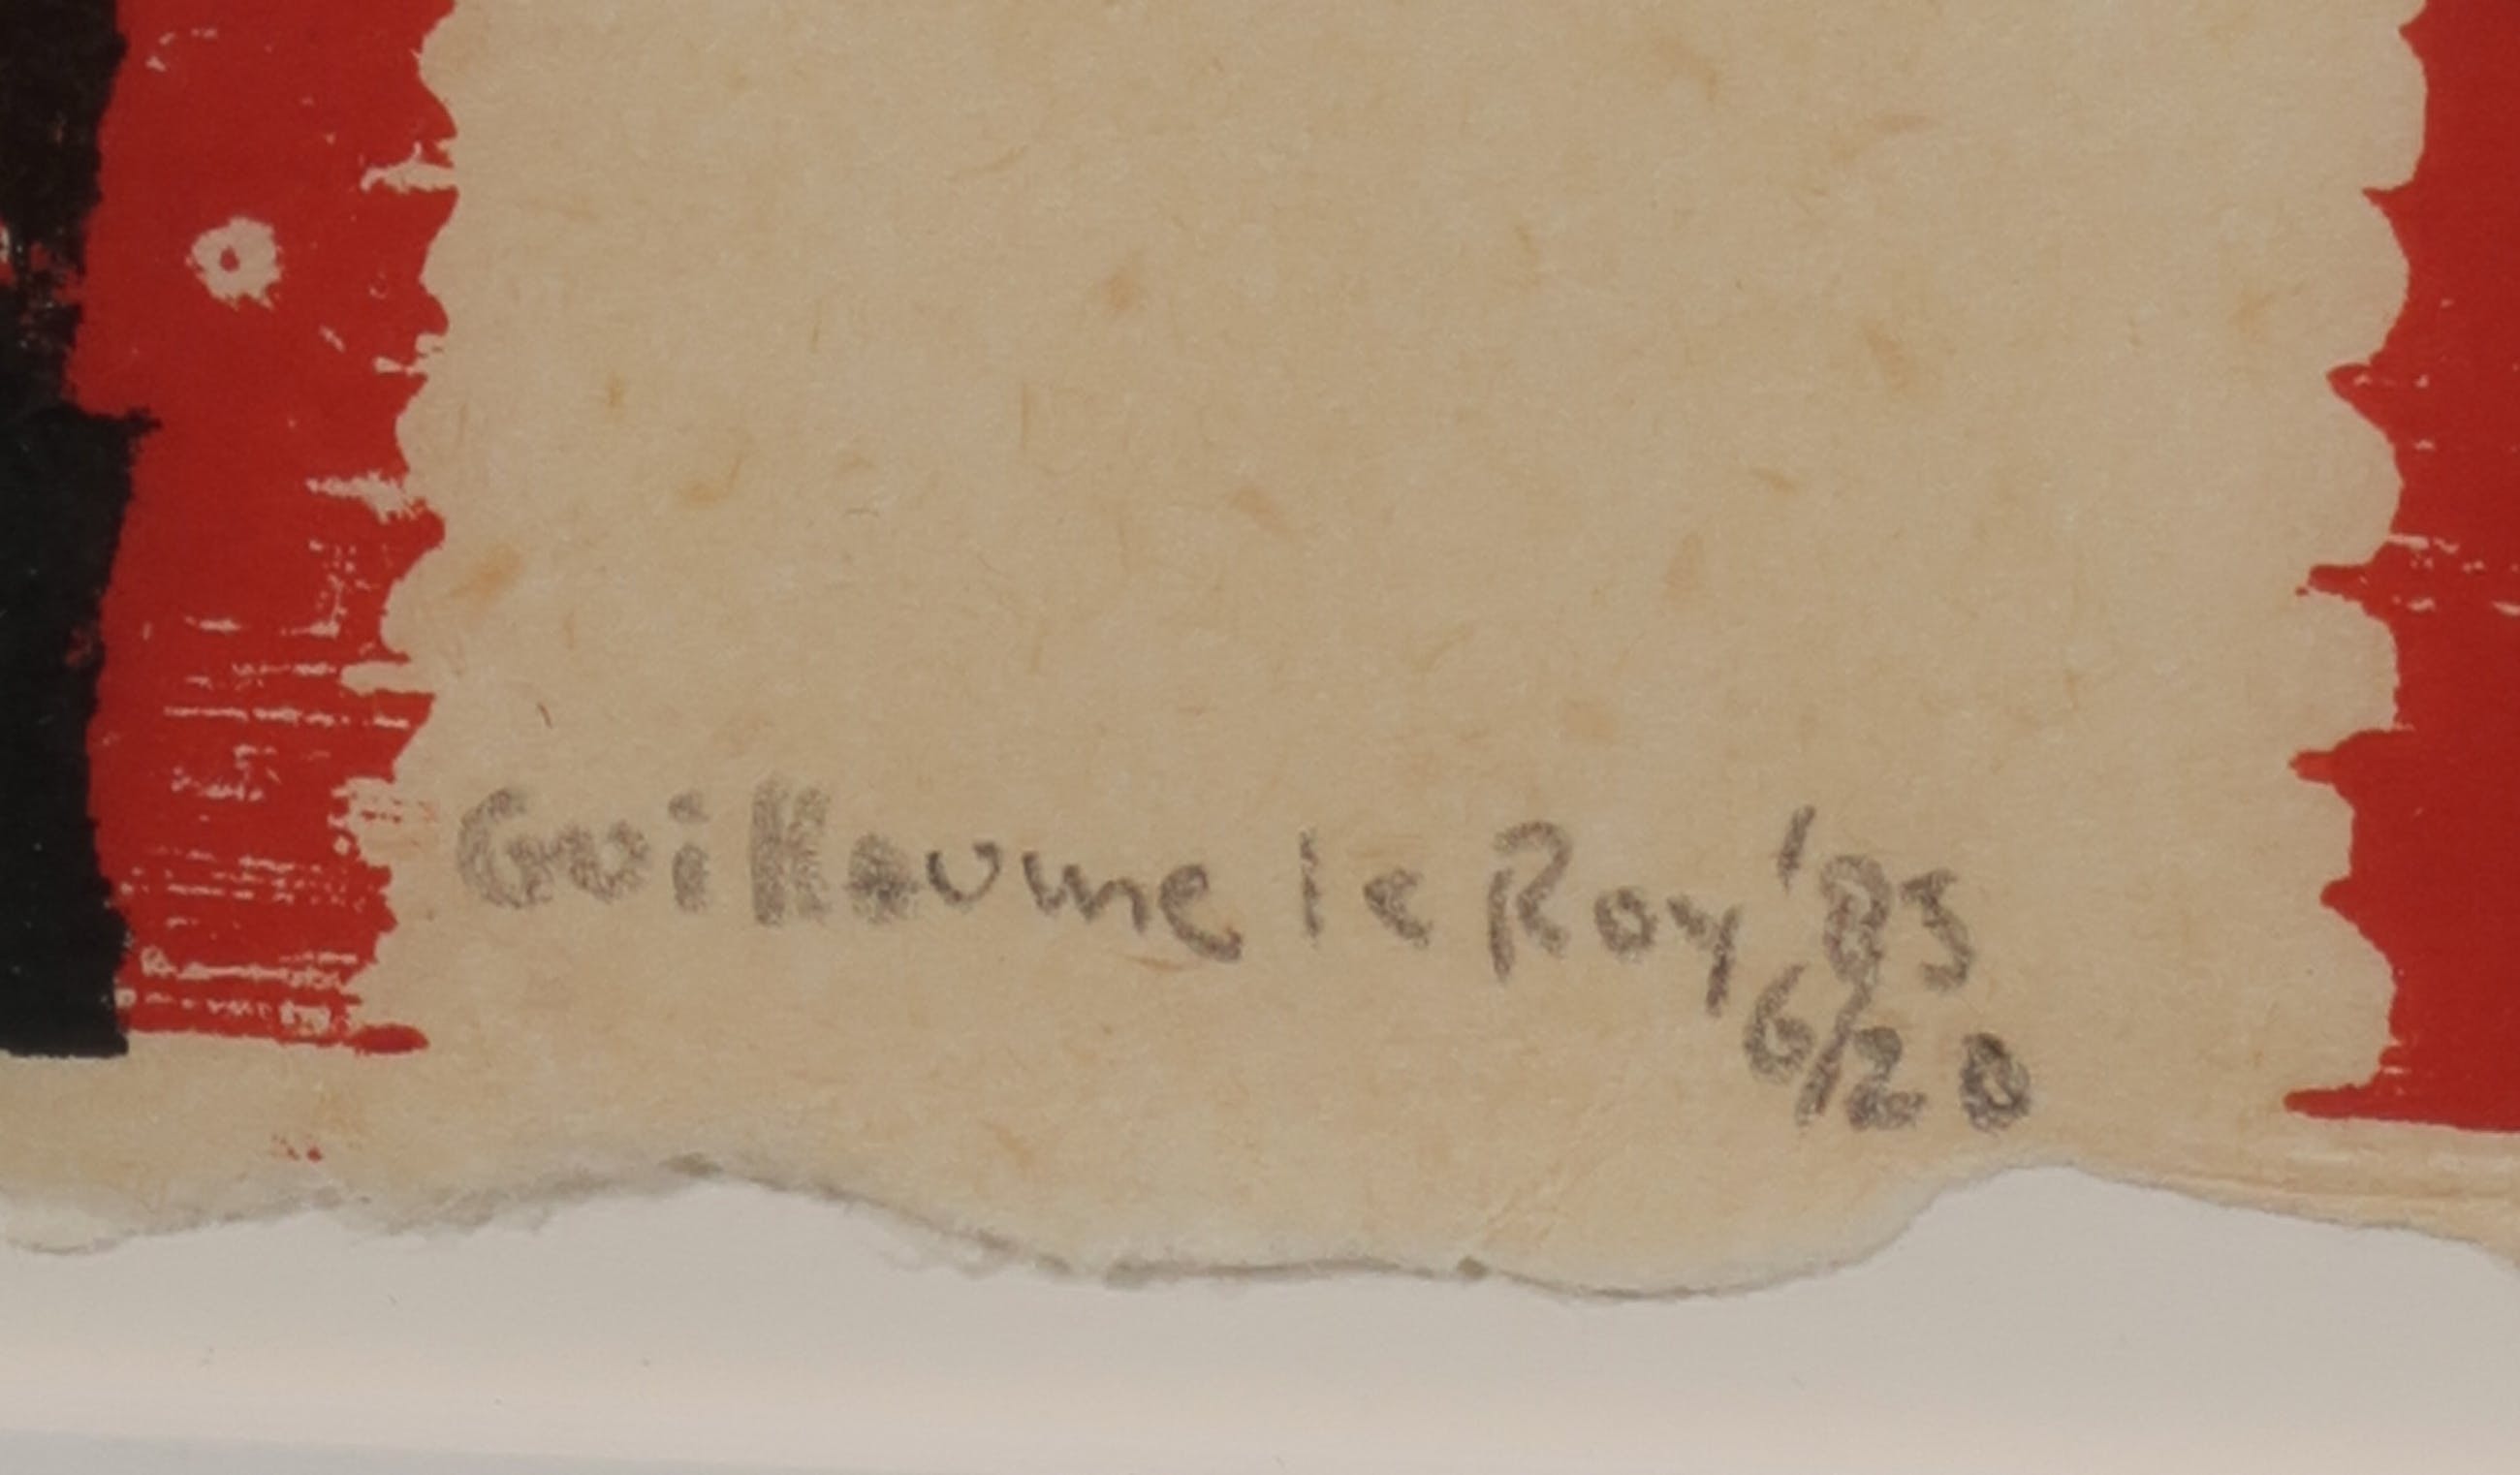 Guillaume le Roy '85
6/20